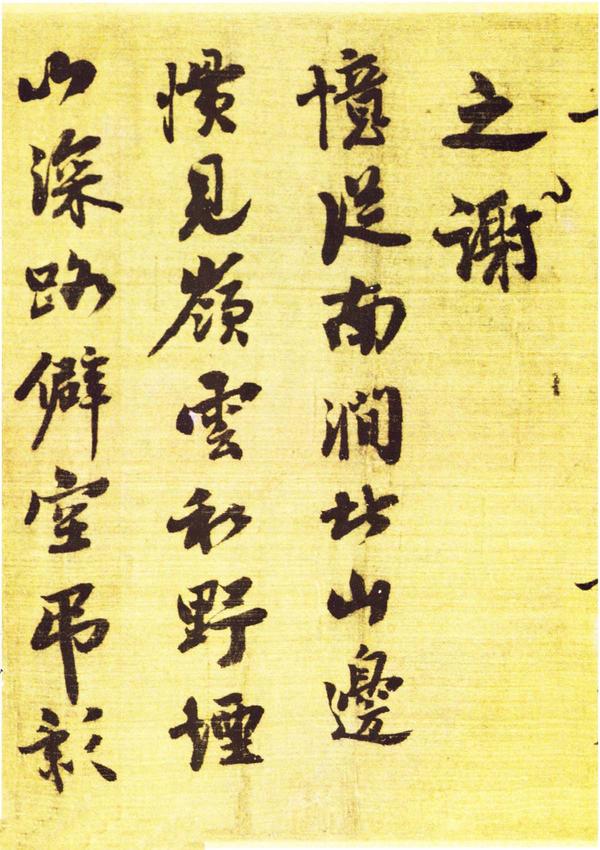 之謝
憶從南澗北山邊
慣見嶺雲和野煙
山深路僻空弔影